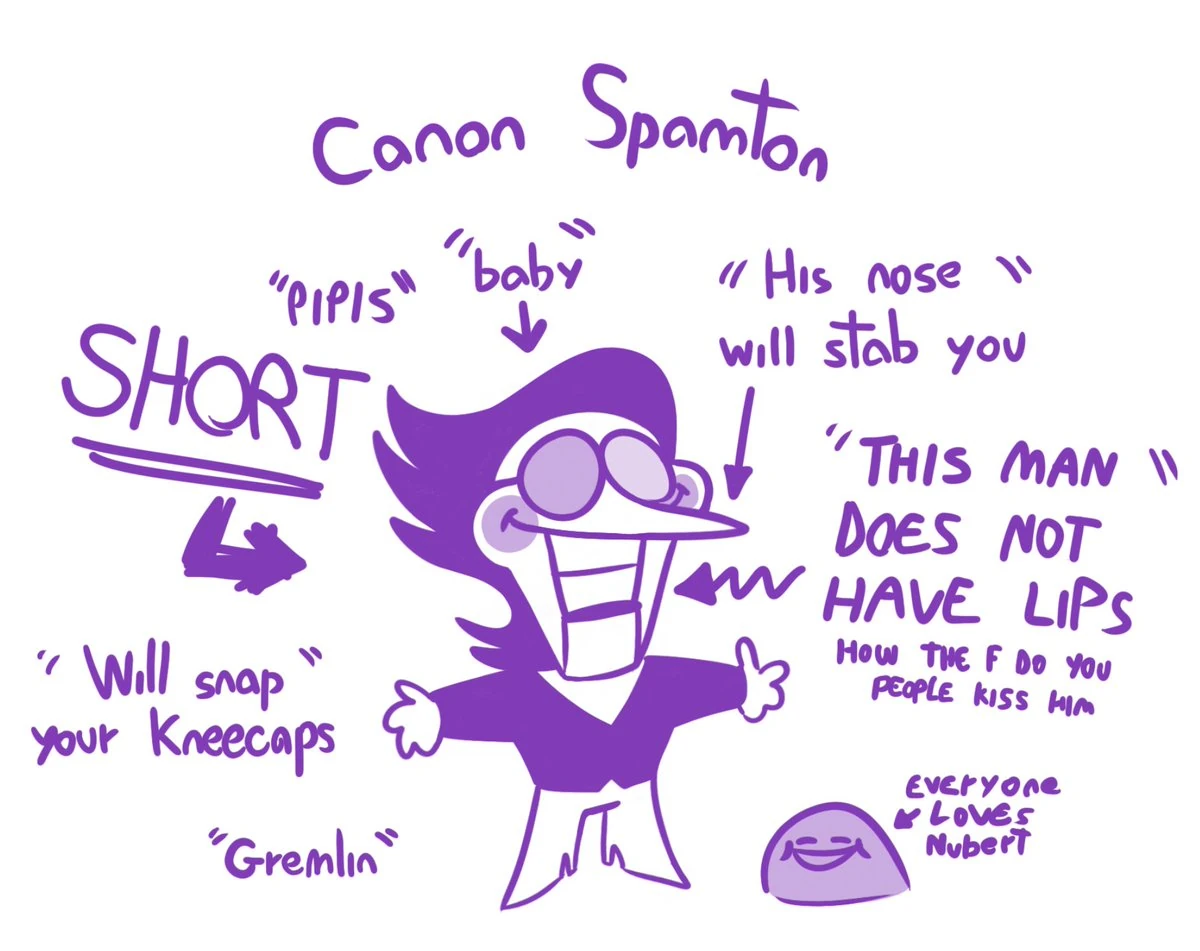 Canon Spamton
"PIPIS"
"baby"
"His nose"
will stab you
SHORT
"THIS MAN"
DOES NOT
HAVE LIPS
HOW THE F DO YOU
PEOPLE KISS HIM
"Will snap"
your Kneecaps
"Gremlin"
EVERYONE
LOVES
NUBERT